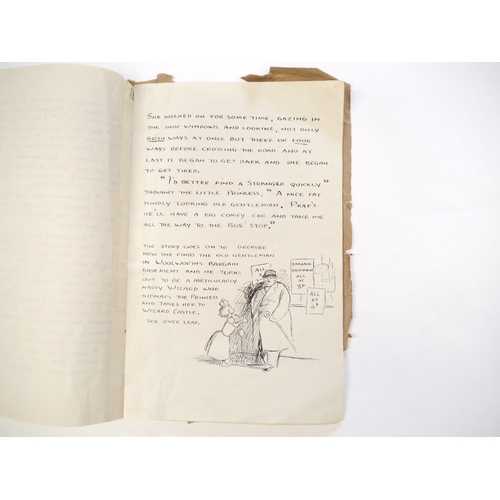 SHE WALKED ON FOR SOME TIME, GAZING IN
THE SHOP WINDOWS AND LOOKING, NOT ONLY
BOTH WAYS AT ONCE BUT THREE OR FOUR
WAYS BEFORE CROSSING THE ROAD AND AT
LAST IT BEGAN TO GET DARK AND SHE BEGAN
TO GET TIRED.
"I'D BETTER FIND A STRANGER QUICKLY"
THOUGHT THE LITTLE PRINCESS, "A NICE FAT
KINDLY LOOKING OLD GENTLEMAN. PRAP'S
HE'LL HAVE A BIG COMFY CAR AND TAKE ME
ALL THE WAY TO THE BUS' STOP."
THE STORY GOES ON TO DECRIBE
HOW SHE FINDS THE OLD GENTLEMAN
IN WOOLWORTH'S BARGAIN
BASEMENT AND HE TURNS
OUT TO BE A PARTICULARLY
NASTY WIZARD WHO
KIDNAPS THE PRINCESS
AND TAKES HER TO
WIZARD CASTLE.
SEE OVER LEAF.
ALL
BARGAIN
BASEMENT
ALL
AT
3D
ALL
AT
6D